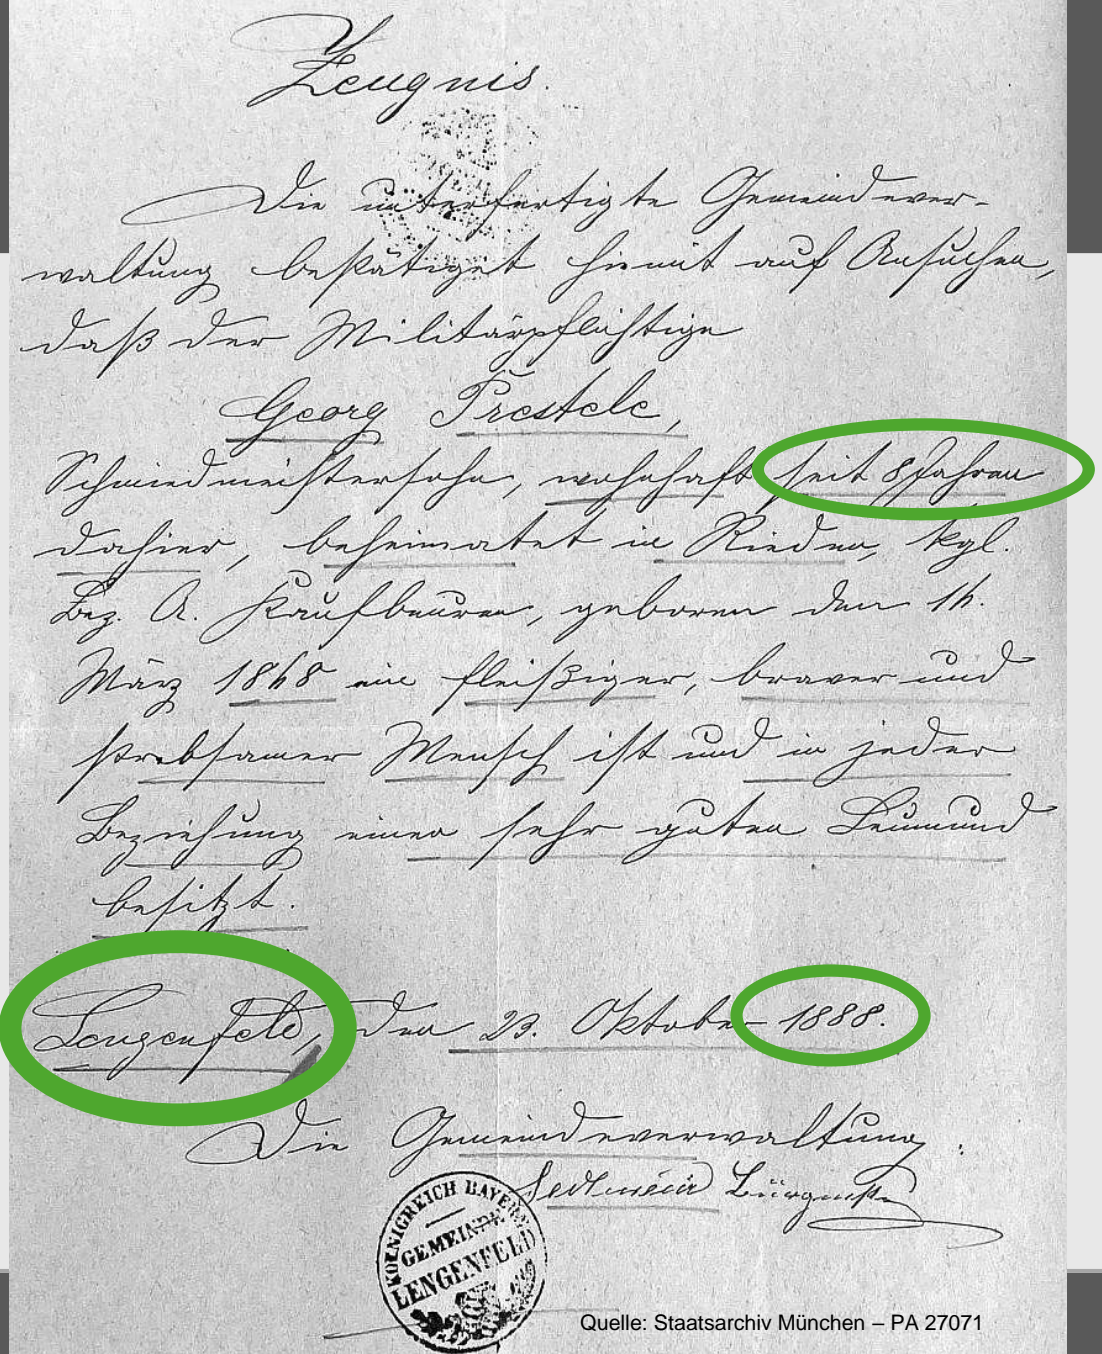 Zeugnis.
Die unterfertigte Gemeindever-
waltung bestätiget hiemit auf Ansuchen,
daß der Militärpflichtige
Georg Prestele,
Schmiedmeisterssohn, wohnhaft seit 8 Jahren
dahier, beheimatet in Rieden, kgl.
Bez. A. Kaufbeuren, geboren den 16.
März 1868 ein fleißiger, braver und
strebsamer Mensch ist und in jeder
Beziehung einen sehr guten Leumund
besitzt.
Lengenfeld, den 23. Oktober 1888.
Die Gemeindeverwaltung:
Sedlmeir Bürgermstr
KOENIGREICH BAYERN
GEMEINDE
LENGENFELD
Quelle: Staatsarchiv München – PA 27071